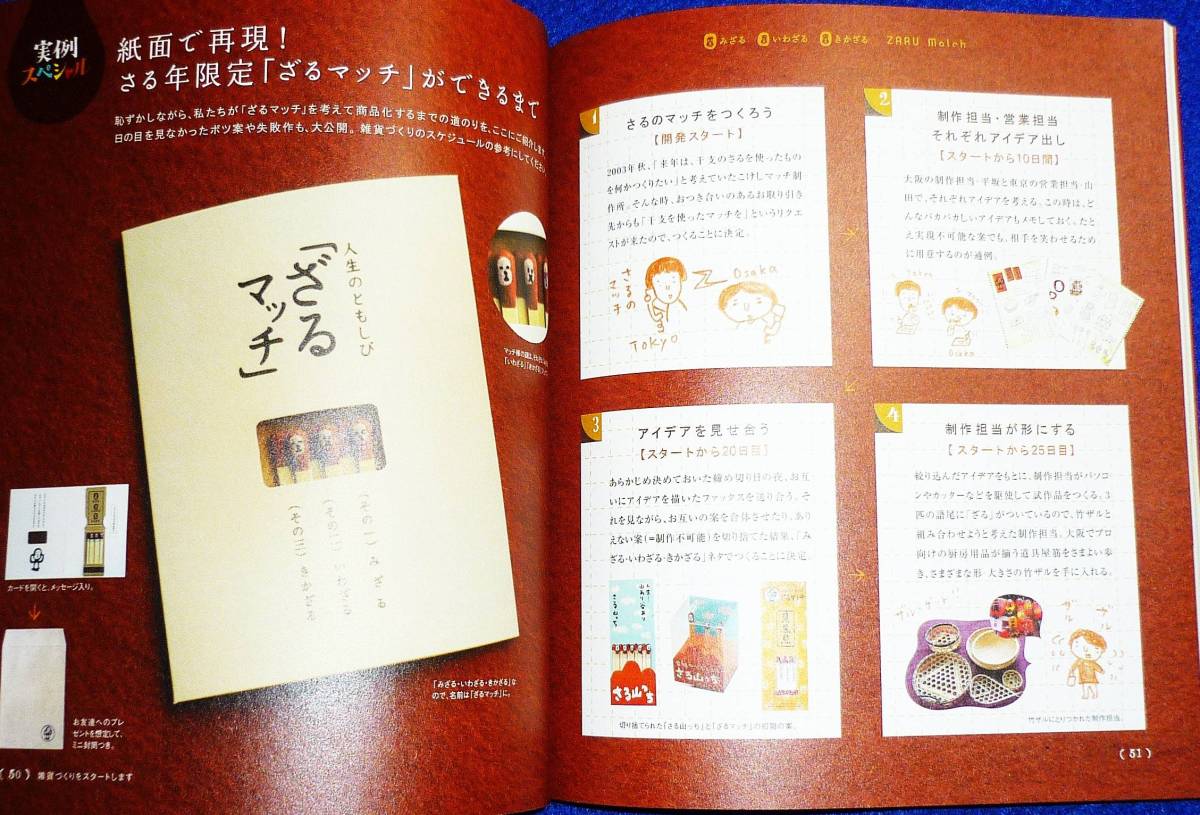 実例
スペシャル
紙面で再現！
さる年限定「ざるマッチ」ができるまで
恥ずかしながら、私たちが「ざるマッチ」を考えて商品化するまでの道のりを、ここにご紹介します
日の目を見なかったボツ案や失敗作も、大公開。雑貨づくりのスケジュールの参考にしてください
人生のともしび
「ざる
マッチ」
（その一）みざる
（その二）いわざる
（その三）きかざる
カードを開くと、メッセージ入り。
お友達へのプレ
ゼントを想定して、
ミニ封筒つき。
「みざる・いわざる・きかざる」な
ので、名前は「ざるマッチ」に。
（50）雑貨づくりをスタートします
みざる いわざる きかざる ZARU Match
1
さるのマッチをつくろう
【開発スタート】
2003年秋、「来年は、干支のさるを使ったもの
を何かつくりたい」と考えていたこけしマッチ制
作所。そんな時、おつき合いのあるお取り引き
先からも「干支を使ったマッチを」というリクエ
ストが来たので、つくることに決定。
さるの
マッチ
Osaka
Tokyo
2
制作担当・営業担当
それぞれアイデア出し
【スタートから10日間】
大阪の制作担当・平坂と東京の営業担当・山
田で、それぞれアイデアを考える。この時は、ど
んなバカバカしいアイデアもメモしておく。たと
え実現不可能な案でも、相手を笑わせるため
に用意するのが通例。
Tokyo
Osaka
3
アイデアを見せ合う
【スタートから20日目】
あらかじめ決めておいた締め切り日の夜、お互
いにアイデアを描いたファックスを送り合う。そ
れを見ながら、お互いの案を合体させたり、あり
えない案（＝制作不可能）を切り捨てた結果、「み
ざる・いわざる・きかざる」ネタでつくることに決定。
さる山っち
さる山っち
切り捨てられた「さる山っち」と「ざるマッチ」の初期の案。
4
制作担当が形にする
【スタートから25日目】
絞り込んだアイデアをもとに、制作担当がパソコ
ンやカッターなどを駆使して試作品をつくる。3
匹の語尾に「ざる」がついているので、竹ザルと
組み合わせようと考えた制作担当。大阪でプロ
向けの厨房用品が揃う道具屋筋をさまよい歩
き、さまざまな形・大きさの竹ザルを手に入れる。
竹ザルにとりつかれた制作担当。
（51）